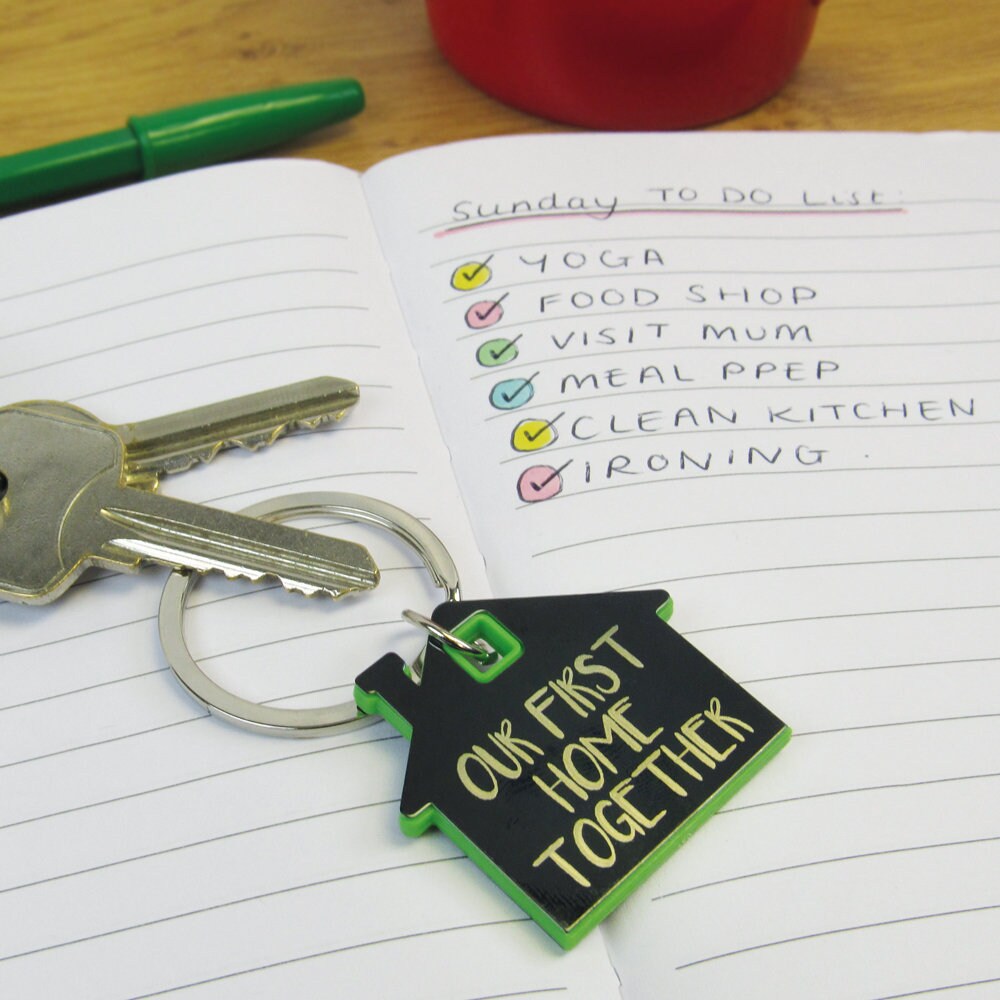 Sunday TO DO List:
YOGA
FOOD SHOP
VISIT MUM
MEAL PPEP
CLEAN KITCHEN
IRONING.
OUR FIRST
HOME
TOGETHER